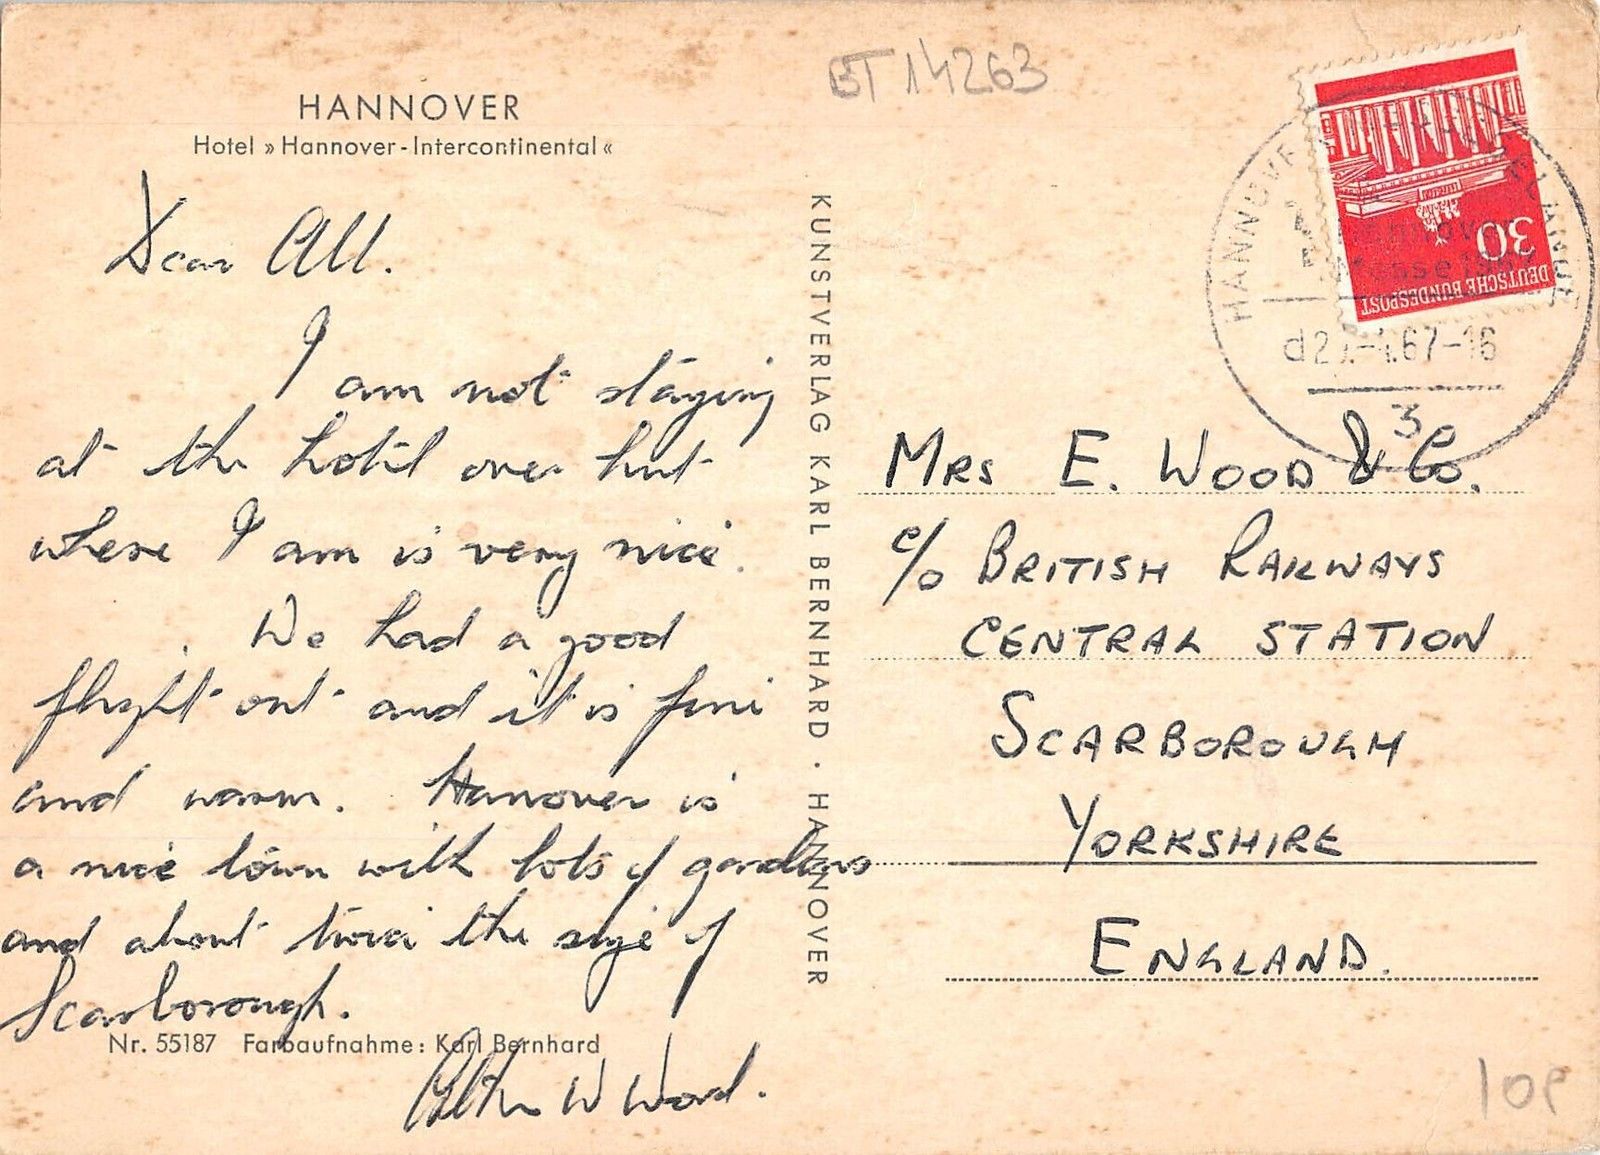 BT 14263
HANNOVER
Hotel »Hannover-Intercontinental«
Dear All.
I am not staying
at the hotel over but
where I am is very nice.
We had a good
flight out and it is fine
and warm. Hanover is
a nice town with lots of gardens
and about twice the size of
Scarborough.
W Wood.
Nr. 55187 Farbaufnahme: Karl Bernhard
KUNSTVERLAG KARL BERNHARD · HANNOVER
30
DEUTSCHE BUNDESPOST
HANNOVER
67-16
3
MRS E. WOOD & Co.
c/o BRITISH RAILWAYS
CENTRAL STATION
SCARBOROUGH
YORKSHIRE
ENGLAND.
10P